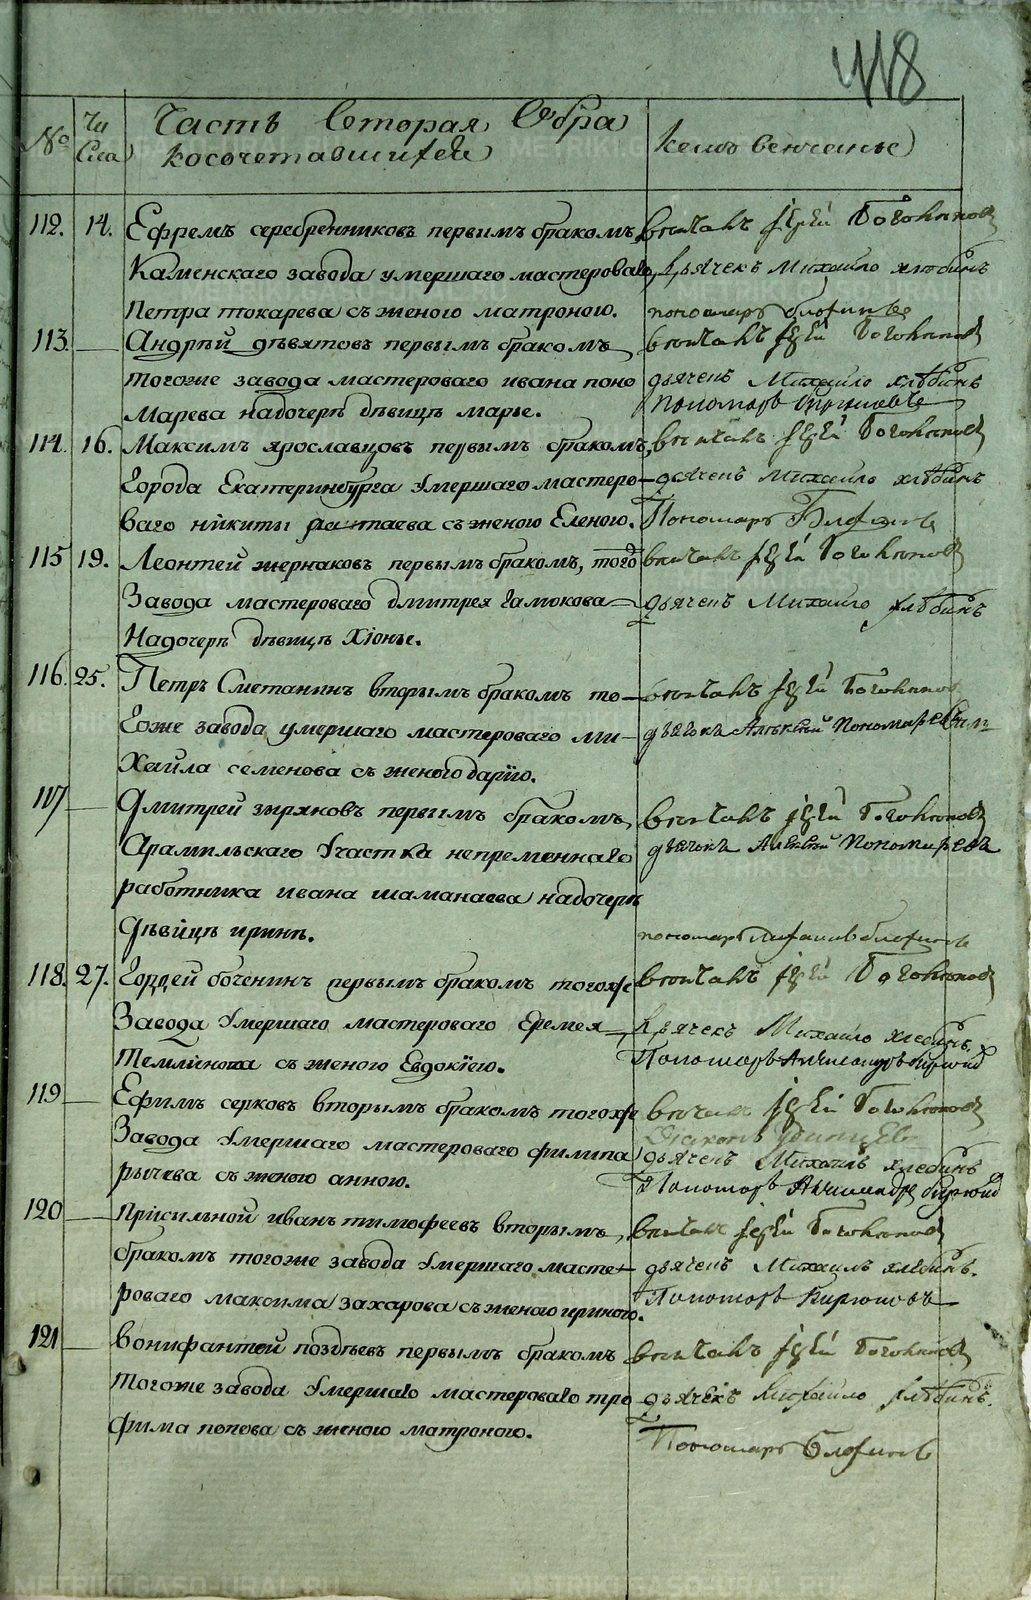 418
№ Чи Часть Вторая О бра
сла косочетавшихся кемъ венчаны
112. 14. Ефремъ серебренниковъ первымъ бракомъ,
Каменскаго завода умершаго мастероваго
Петра токарева съ женою матроною.
венчалъ Іерей
дьячекъ Михайло хлѣбинъ
пономарь
113 Андрѣй дѣвятовъ первымъ бракомъ
тогоже завода мастероваго ивана поно
марева надочерѣ дѣвицѣ марье.
венчалъ Іерей
дьячекъ Михайло хлѣбинъ
пономарь
114. 16. Максимъ ярославцовъ первымъ бракомъ,
города Екатеринбурга умершаго мастеро-
ваго никиты съ женою Еленою.
венчалъ Іерей
дьячекъ Михайло хлѣбинъ
Пономарь
115 19. Леонтей жернаковъ первымъ бракомъ, того
Завода мастероваго дмитрея
Надочерѣ дѣвицѣ Хіонье.
венчалъ Іерей
дьячекъ Михайло хлѣбинъ
116. 25. Петръ Сметанинъ вторымъ бракомъ то-
гоже завода умершаго мастероваго ми-
хайла семенова съ женою дарїю.
венчалъ Іерей
дьячокъ Алексѣй Пономаревъ
117 Дмитрей зыряновъ первымъ бракомъ,
Арамильскаго участка непременнаго
работника ивана шаманаева надочерѣ
дѣвицѣ иринѣ.
венчалъ Іерей
дьячокъ Алексѣй Пономаревъ
пономарь
118. 27. Гордей боченинъ первымъ бракомъ тогоже
Завода умершаго мастероваго Еремея
съ женою Евдокїею.
венчалъ Іерей
дьячекъ Михайло хлебинъ
Пономарь Александръ
119 Ефимъ серковъ вторымъ бракомъ тогоже
Завода умершаго мастероваго филипа
рычева съ женою анною.
венчалъ Іерей
дьячекъ Михаилъ хлебинъ
Пономарь Александръ
120 присыльной иванъ тимофеевъ вторымъ
бракомъ тогоже завода умершаго масте-
роваго максима захарова съ женою ириною.
венчалъ Іерей
дьячекъ Михаилъ хлебинъ.
Пономарь
121 Вонифантей поздѣевъ первымъ бракомъ
тогоже завода умершаго мастероваго тро
фима попова съ женою матроною.
венчалъ Іерей
дьячекъ Михайло хлѣбинъ.
Пономарь
METRIKI.GASO-URAL.RU